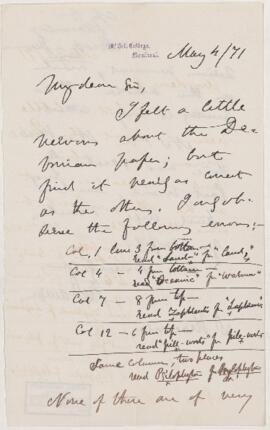 McGill College,
Montreal.
May 4/71
My dear Sir,
I felt a little
nervous about the De-
vonian paper; but
find it nearly as correct
as the others. I only ob-
serve the following errors:-
Col, 1 line 3 from bottom —
read "Land" for "Sand,"
Col 4 — 4 from bottom —
read "Oceanic" for
Col 7 — 8 from top —
read for
Col 12 — 6 from top —
read "pill-works" for pile-works
Same column, two places
read Psilophyton for
None of these are of very